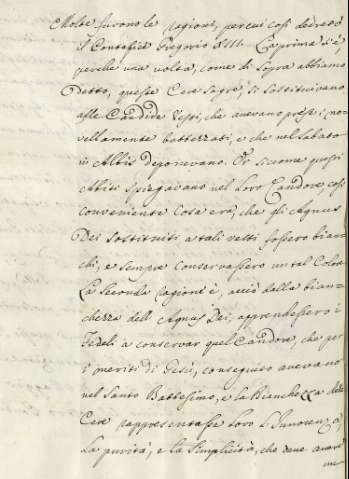 Molte furono le ragioni, per cui così decretò
il Pontefice Gregorio XIII. La prima si è,
perche una volta, come di sopra abbiamo
detto, queste Cere Sagre, si sostituivano
alle Candide Vesti, che avevano prese i no-
vellamente battezzati, e che nel Sabato
in Albis deponevano. Or siccome quegli
Abiti spiegavano nel loro Candore, così
conveniente cosa era, che gli Agnus
Dei sostituiti a tali vesti fossero bian-
chi, e sempre conservassero un tal Colore
La seconda ragione è, acciò dalla bian-
chezza dell'Agnus Dei, apprendessero i
Fedeli a conservar quel Candore, che per
i meriti di Gesù, conseguito avevano
nel Santo Battesimo, e la Bianchezza delle
Cere rappresentasse loro l'Innocenza,
la purità, e la Simplicità, che deve avere